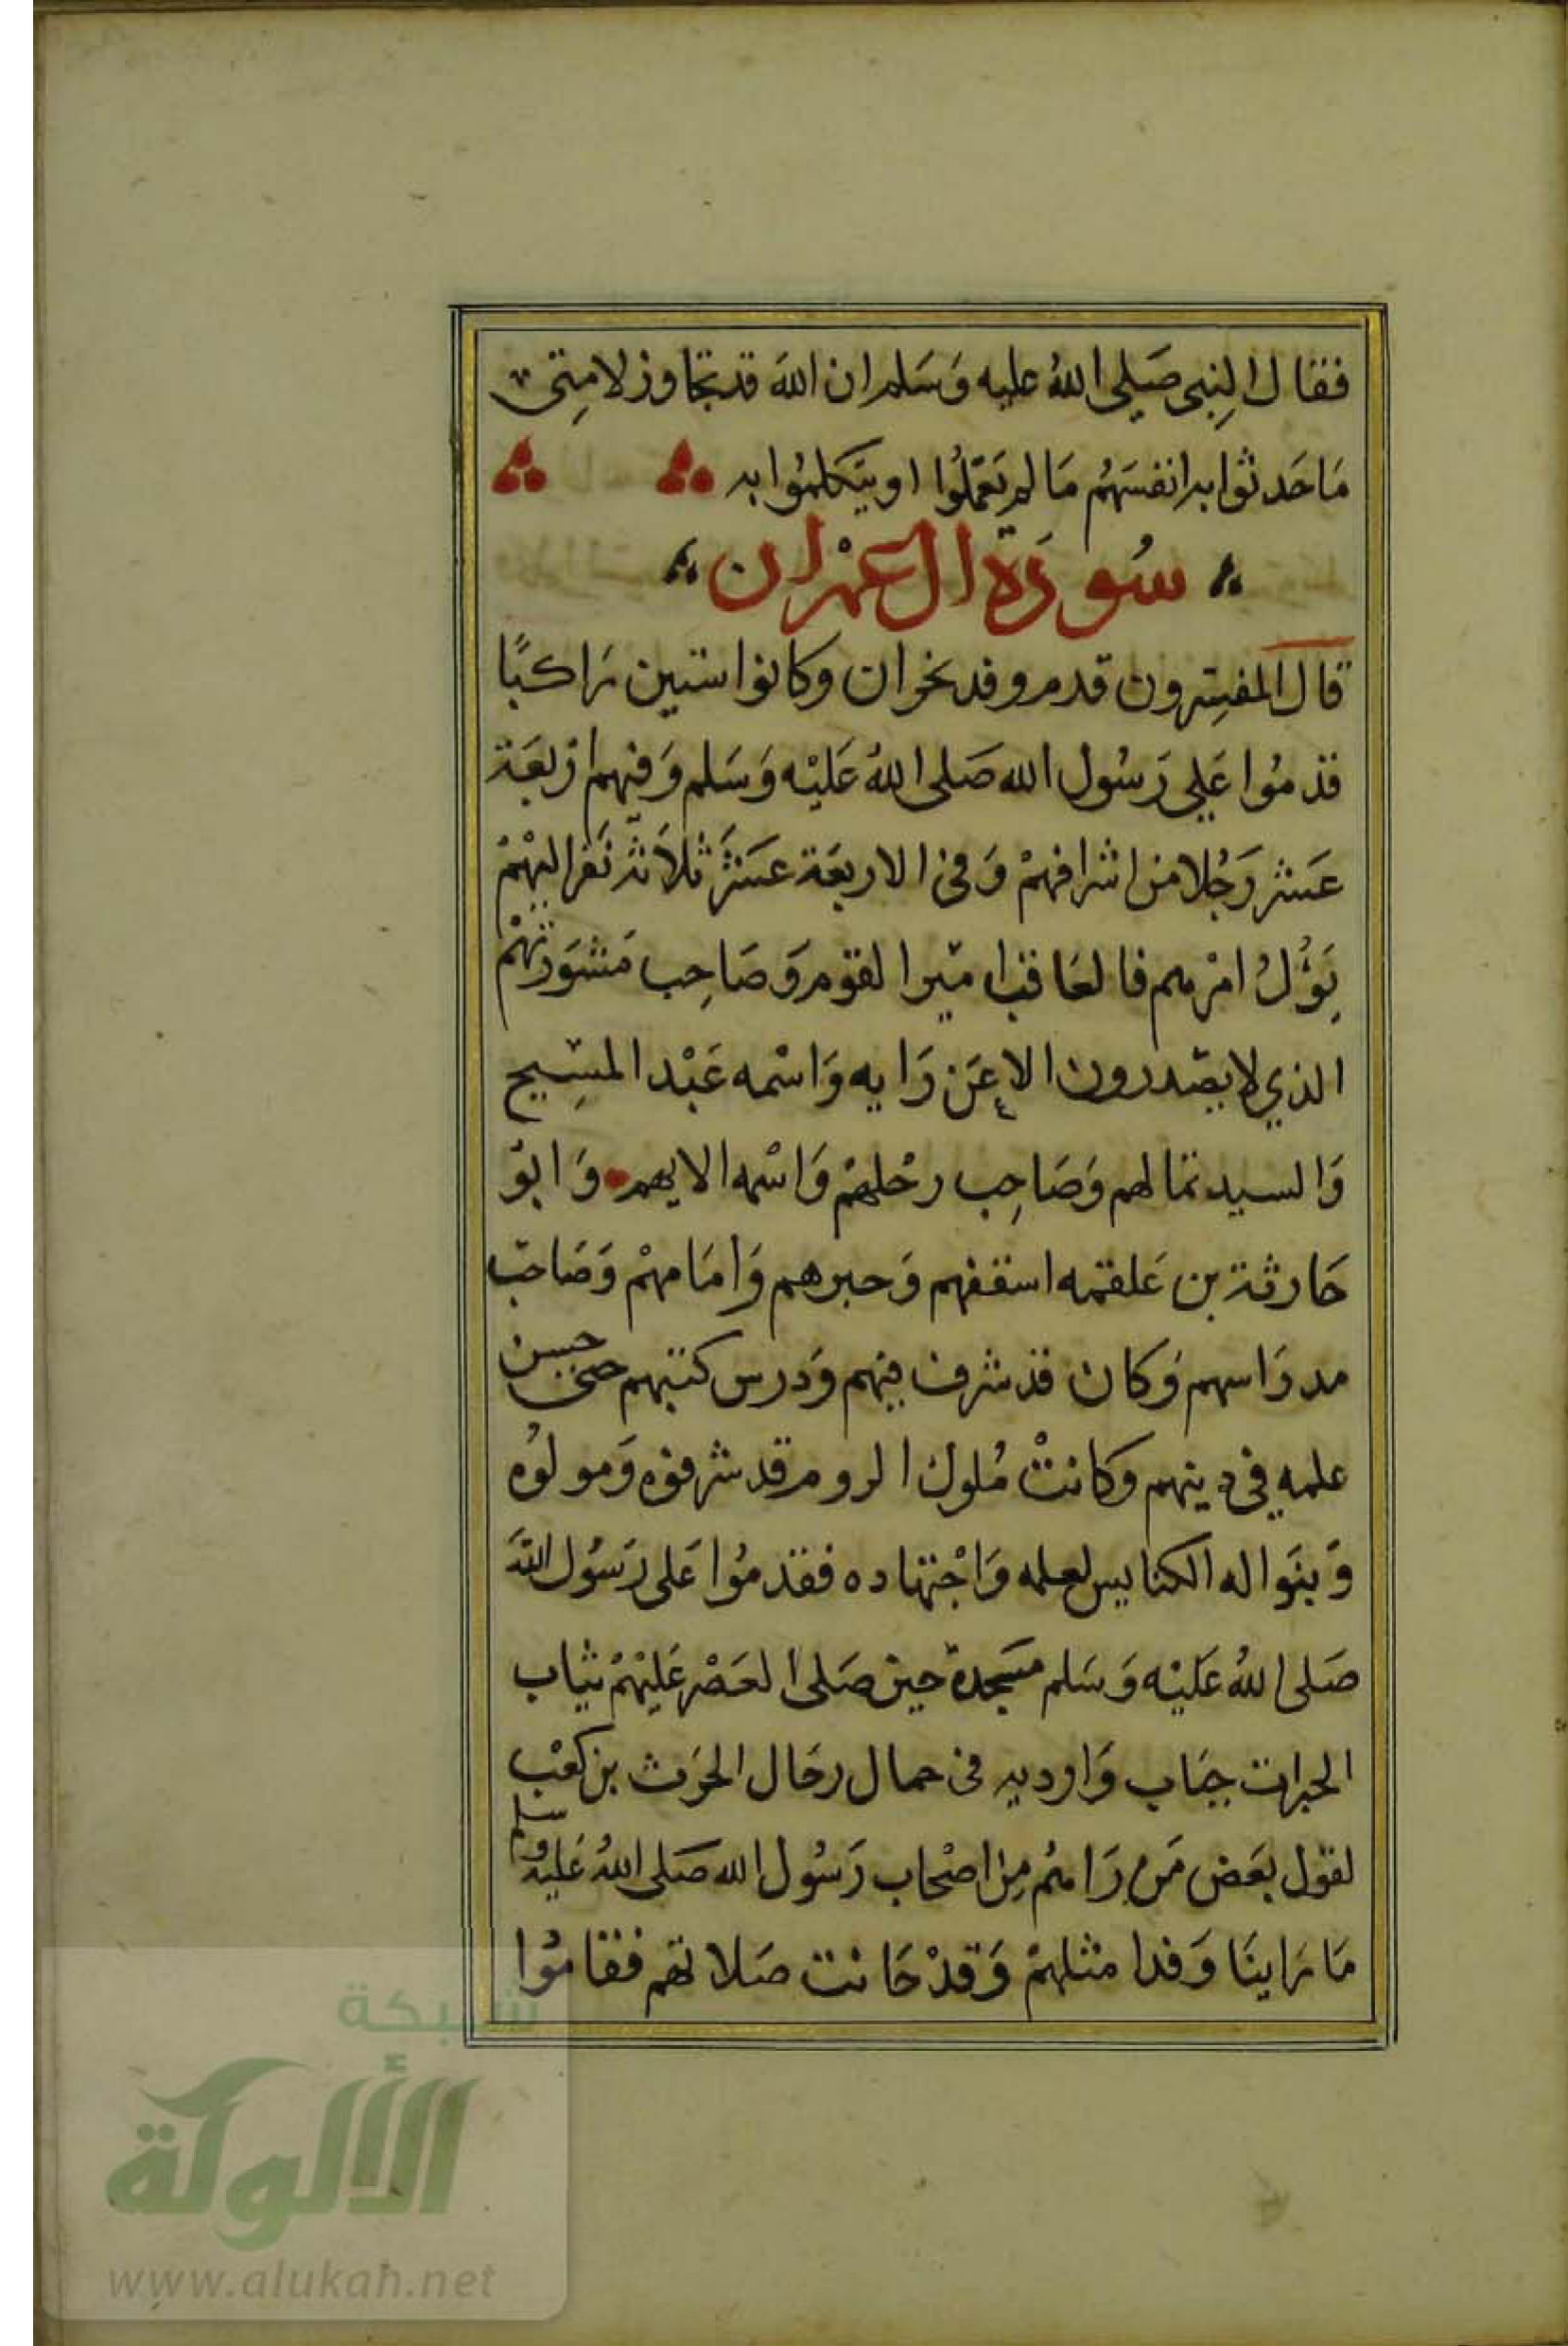 فقال النبي صَلى اللهُ عليه وَسَلم ان اللهَ قد تجاوز لامتى
مَا حَدثوا به انفسَهُم مَا لم يَعمَلُوا او يتكلمُوا به
سُورَة ال عمْران
قال المفسرون قدم وفد نجران وكانوا ستين رَاكبًا
قدمُوا عَلى رَسُول الله صَلى اللهُ عَليْه وَسَلم وَفيهم ارْبعَة
عَشر رَجُلا من اشرافهمْ وَفى الاربعَة عَشرَ ثلاثة نَفر اليهْمْ
يَؤُلُ امْرهم فالعَاقب امير القوم وَصَاحِب مَشوَرتهْم
الذي لا يصْدرون الا عَن رَايه وَاسْمه عَبْد المسِيح
وَالسيد ثمالهم وَصَاحِب رحْلهمْ وَاسْمه الايهم وَابوُ
حَارثة بن عَلقمه اسقفهم وَحبرهم وَامَامهمْ وَصَاحب
مدرَاسهم وَكان قد شرف فيهم وَدرس كتبهم حتى حسن
علمه فى دينهم وكانتْ مُلوك الروم قد شرفوه وَمولوُه
وَبنَوا له الكنايس لعلمه وَاجْتهاده فقدمُوا عَلى رَسُول اللهَ
صَلى اللهُ عَليْه وَسَلم مسَجدهَ حين صَلى العَصْر عَليْهمْ ثيَاب
الحبرات جبَاب وَاردية فى جمال رجَال الحرَث بن كعْب
لقول بعَض مَن رَاهُم مِن اصْحاب رَسُول الله صَلى اللهُ عَليْه وسلم
مَا رَاينَا وَفدا مثلهمْ وَقدْ حَانت صَلاتهم فقامُوا
شبكة
الألوكة
www.alukah.net